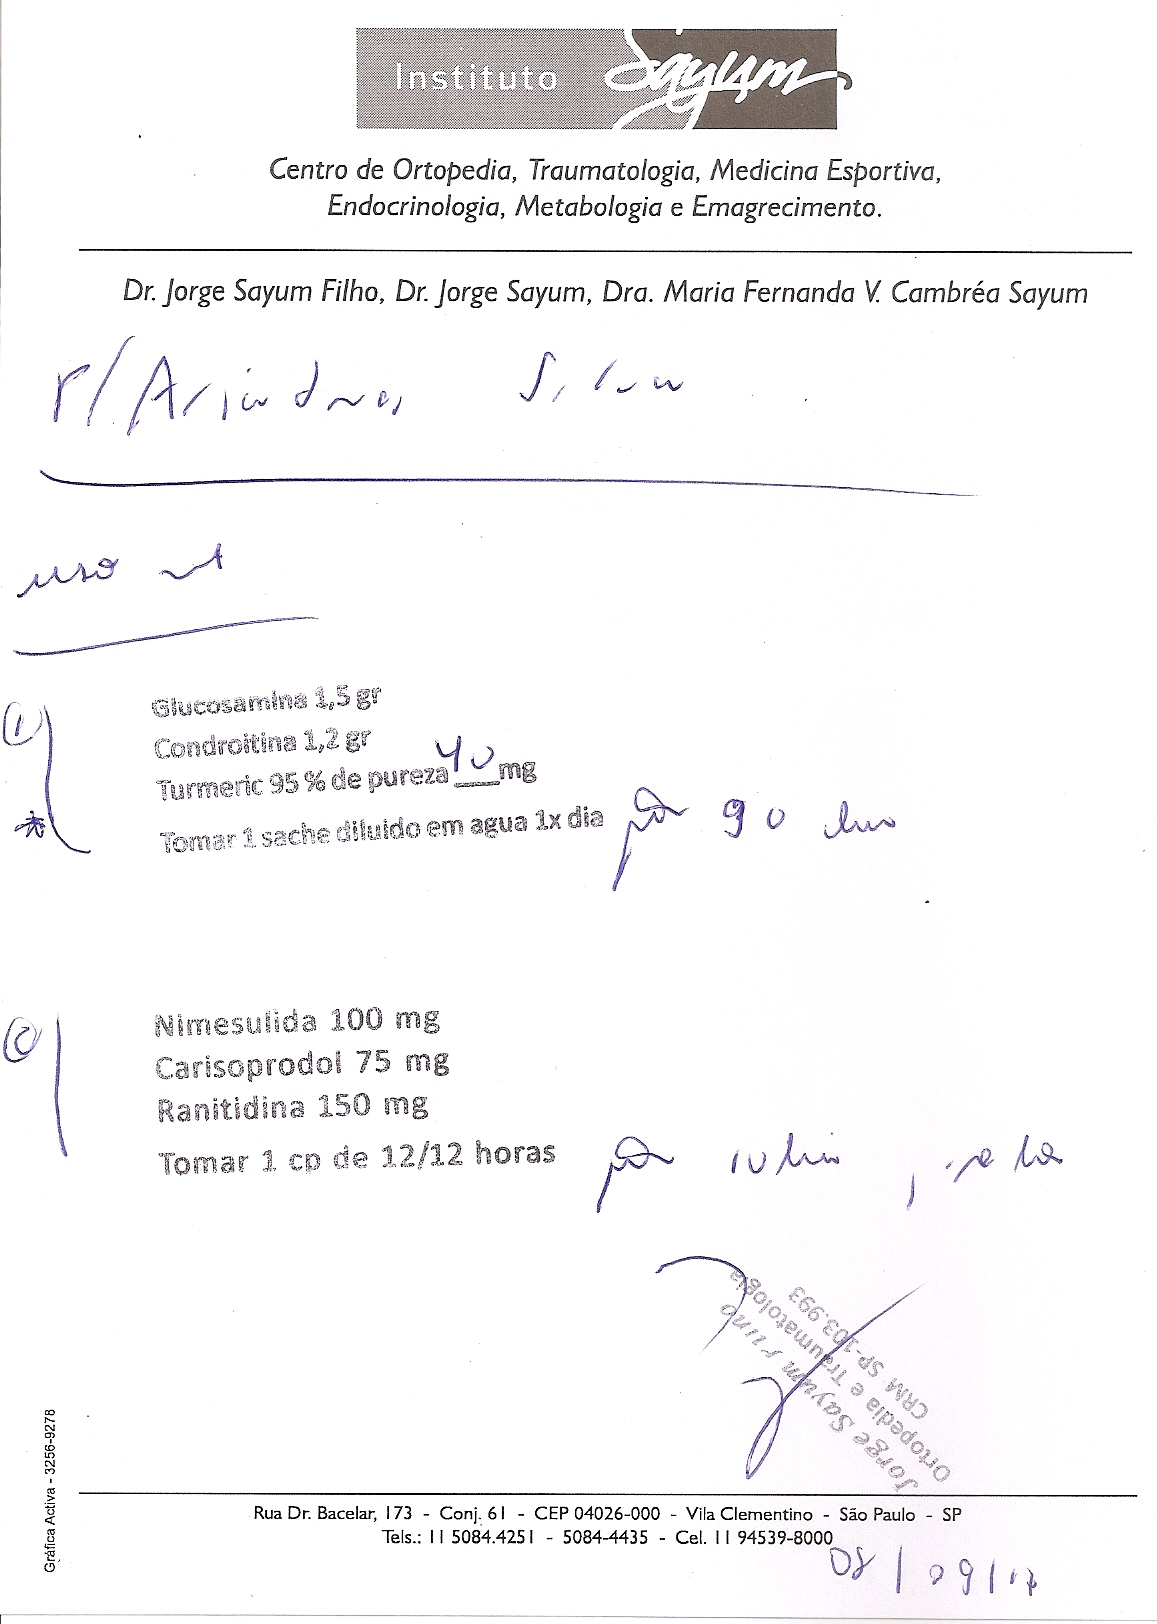 Instituto Sayum
Centro de Ortopedia, Traumatologia, Medicina Esportiva,
Endocrinologia, Metabologia e Emagrecimento.
Dr. Jorge Sayum Filho, Dr. Jorge Sayum, Dra. Maria Fernanda V. Cambréa Sayum
P/
uso
1
Glucosamina 1,5 gr
Condroitina 1,2 gr
Turmeric 95 % de pureza 40 mg
Tomar 1 sache diluido em agua 1x dia por 90
2
Nimesulida 100 mg
Carisoprodol 75 mg
Ranitidina 150 mg
Tomar 1 cp de 12/12 horas por 10
Jorge Sayum Filho
Ortopedia e Traumatologia
CRM SP-103.993
Gráfica Activa - 3256-9278
Rua Dr. Bacelar, 173 - Conj. 61 - CEP 04026-000 - Vila Clementino - São Paulo - SP
Tels.: 11 5084.4251 - 5084-4435 - Cel. 11 94539-8000
08/09/17